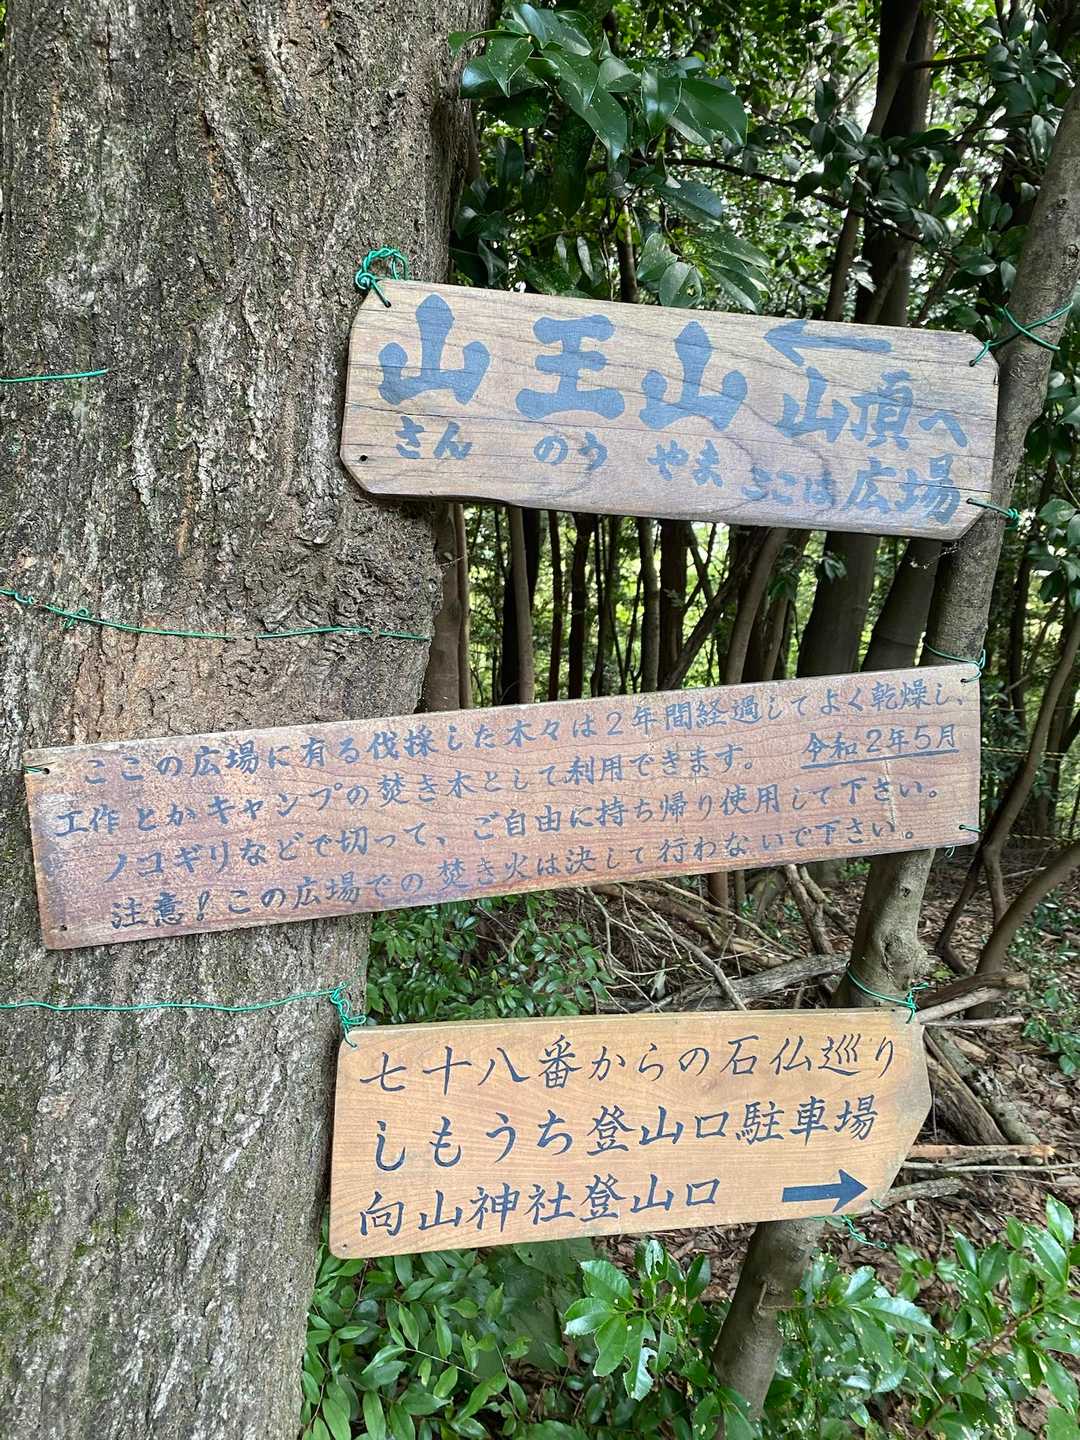 山王山 ← 山頂へ
さんのうやま ここは広場
ここの広場に有る伐採した木々は2年間経過してよく乾燥し、
工作とかキャンプの焚き木として利用できます。 令和2年5月
ノコギリなどで切って、ご自由に持ち帰り使用して下さい。
注意!この広場での焚き火は決して行わないで下さい。
七十八番からの石仏巡り
しもうち登山口駐車場
向山神社登山口 →